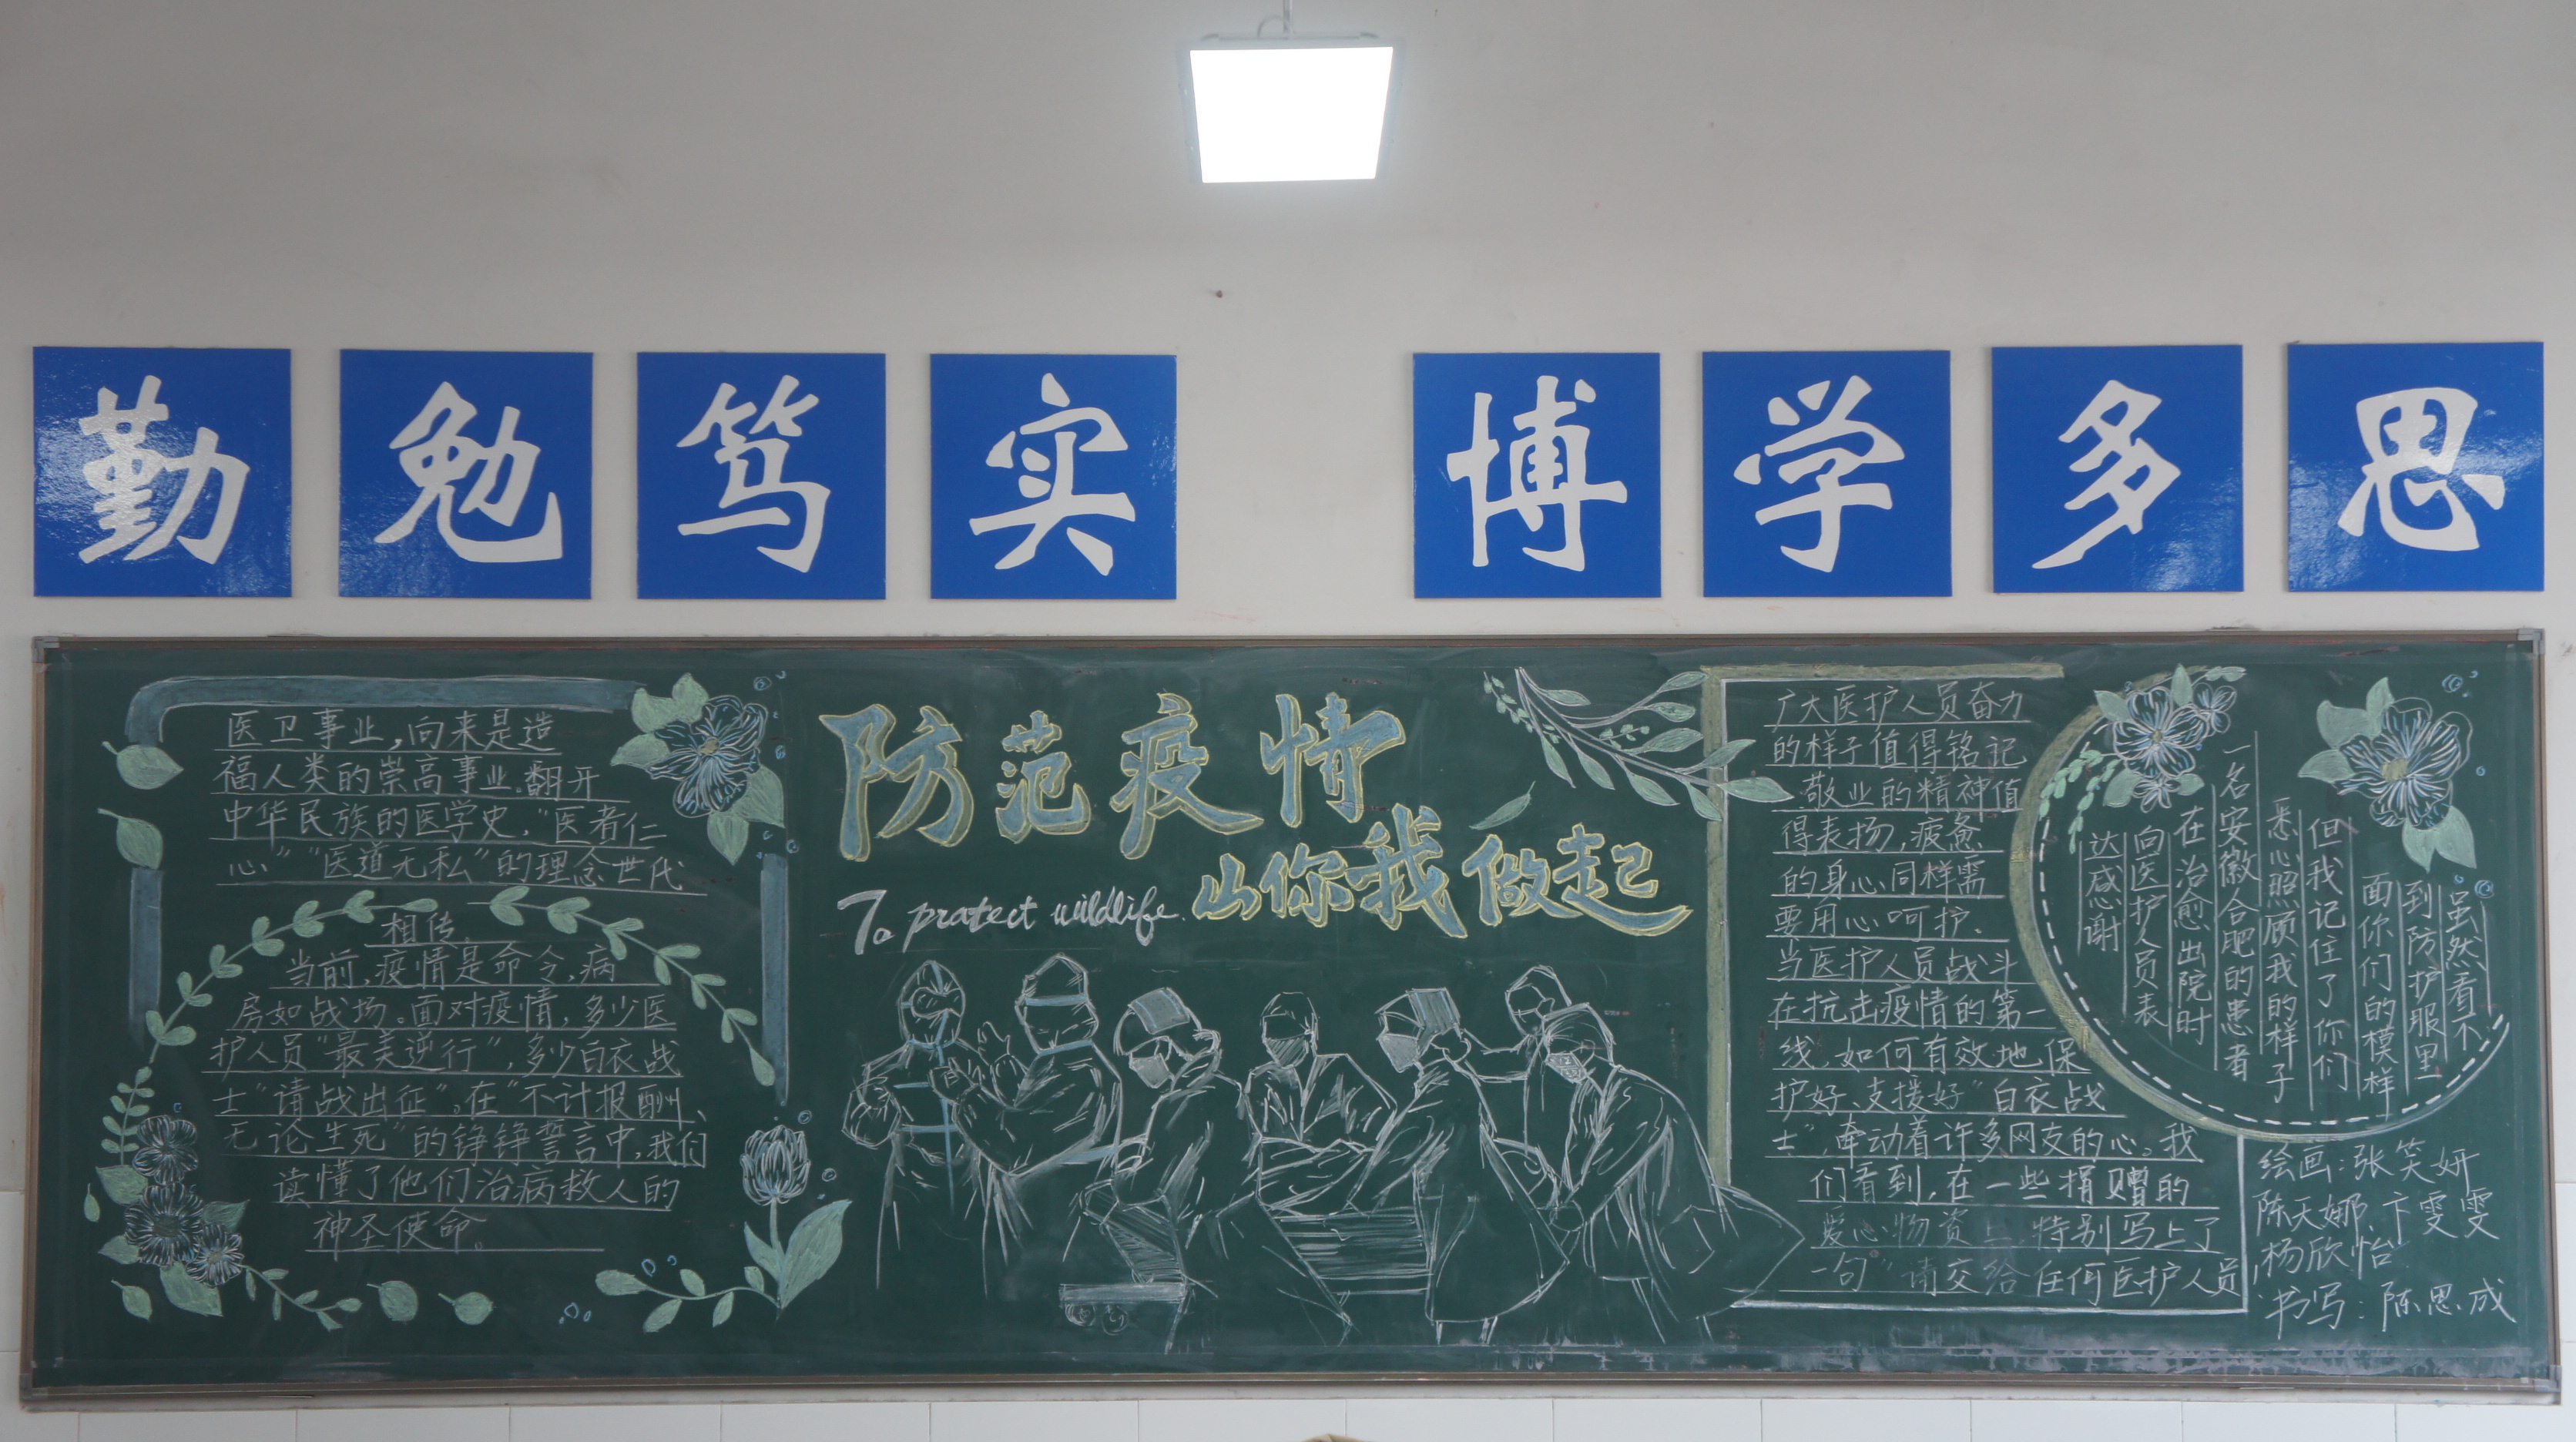 勤勉笃实 博学多思
医卫事业,向来是造
福人类的崇高事业.翻开
中华民族的医学史,"医者仁
心""医道无私"的理念世代
相传.
当前,疫情是命令,病
房如战场。面对疫情,多少医
护人员"最美逆行",多少白衣战
士"请战出征"。在"不计报酬、
无论生死"的铮铮誓言中,我们
读懂了他们治病救人的
神圣使命。
防范疫情
山你我做起
To pratect wildlife.
广大医护人员奋力
的样子值得铭记
敬业的精神值
得表扬,疲惫
的身心同样需
要用心呵护.
当医护人员战斗
在抗击疫情的第一
线,如何有效地保
护好、支援好"白衣战
士",牵动着许多网友的心。我
们看到,在一些捐赠的
爱心物资上特别写上了
一句"请交给任何医护人员
虽然看不
到防护服里
面你们的模样
但我记住了你们
悉心照顾我的样子
一名安徽合肥的患者
在治愈出院时
向医护人员表
达感谢
绘画:张笑妍
陈天娜、卞雯雯
杨欣怡
书写:陈思成